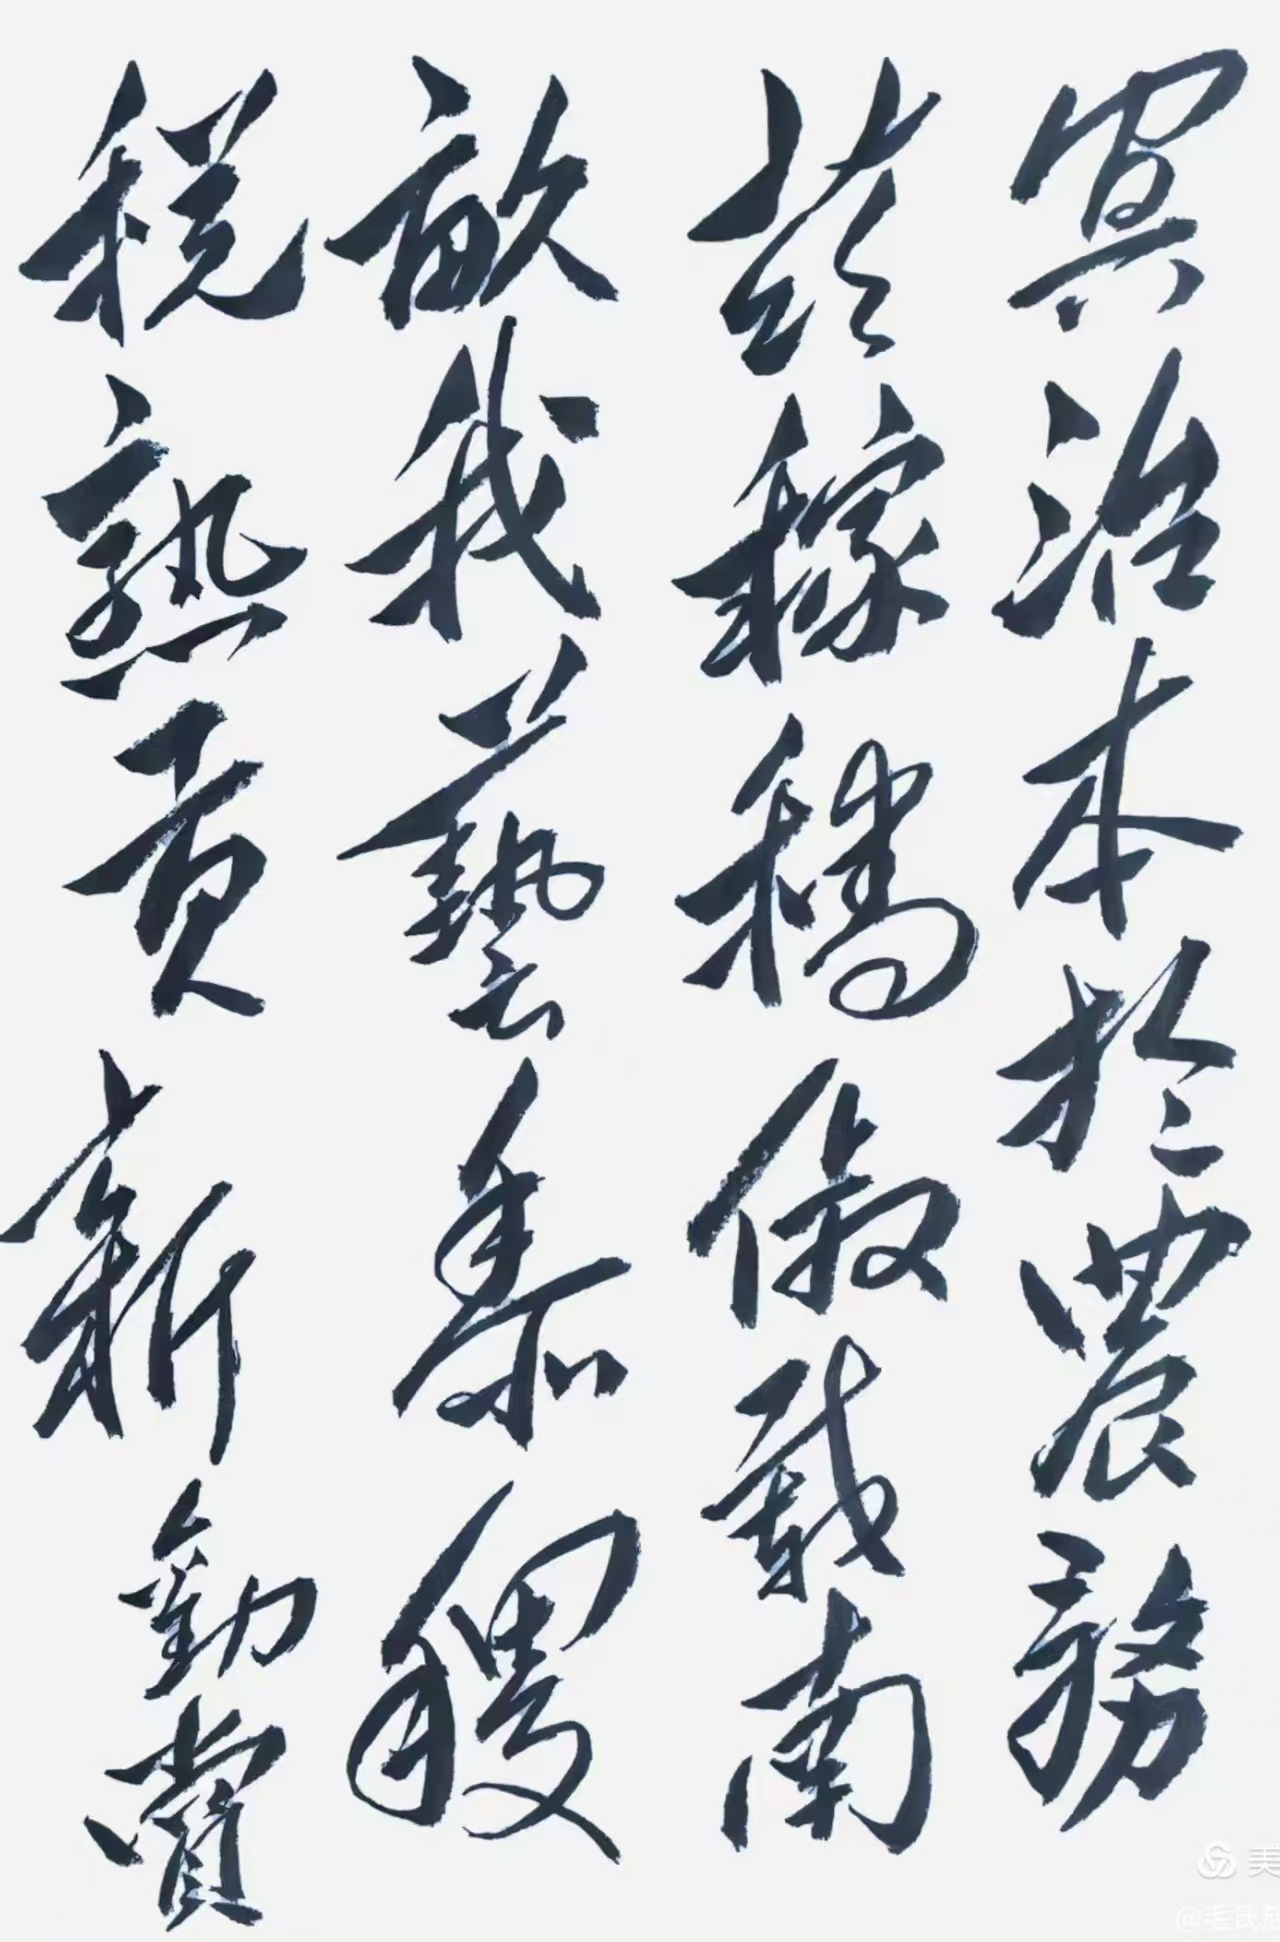 冥治本於農務
茲稼穡俶載南
畝我藝黍稷
稅熟貢新勸賞
美
@毛氏